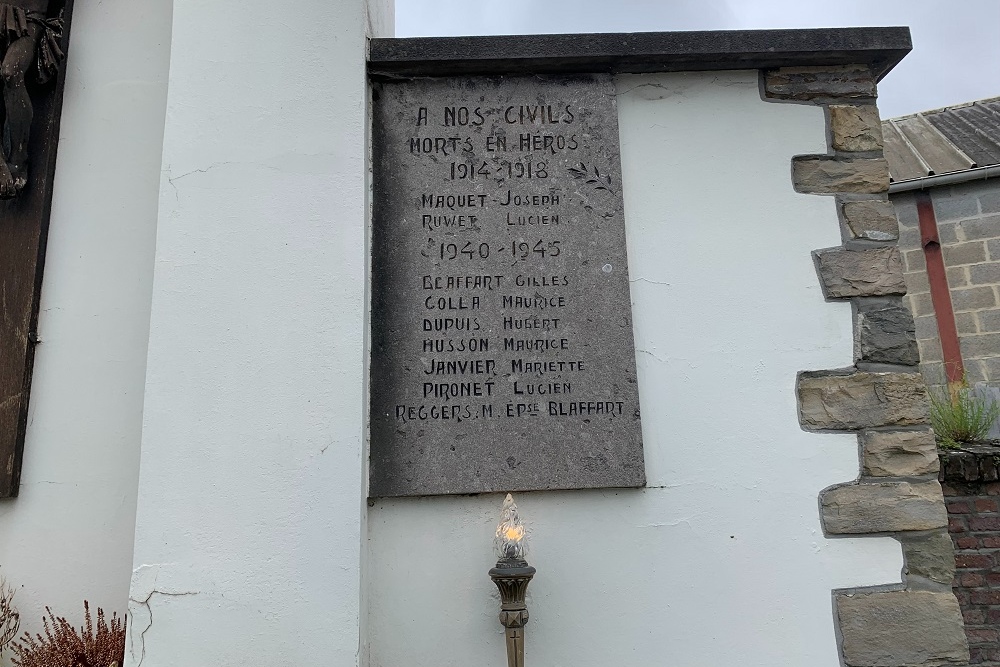 A NOS CIVILS
MORTS EN HÉROS
1914-1918
MAQUET-JOSEPH
RUWET LUCIEN
1940-1945
BLAFFART GILLES
COLLA MAURICE
DUPUIS HUBERT
HUSSON MAURICE
JANVIER MARIETTE
PIRONET LUCIEN
REGGERS. M. EPSE BLAFFART